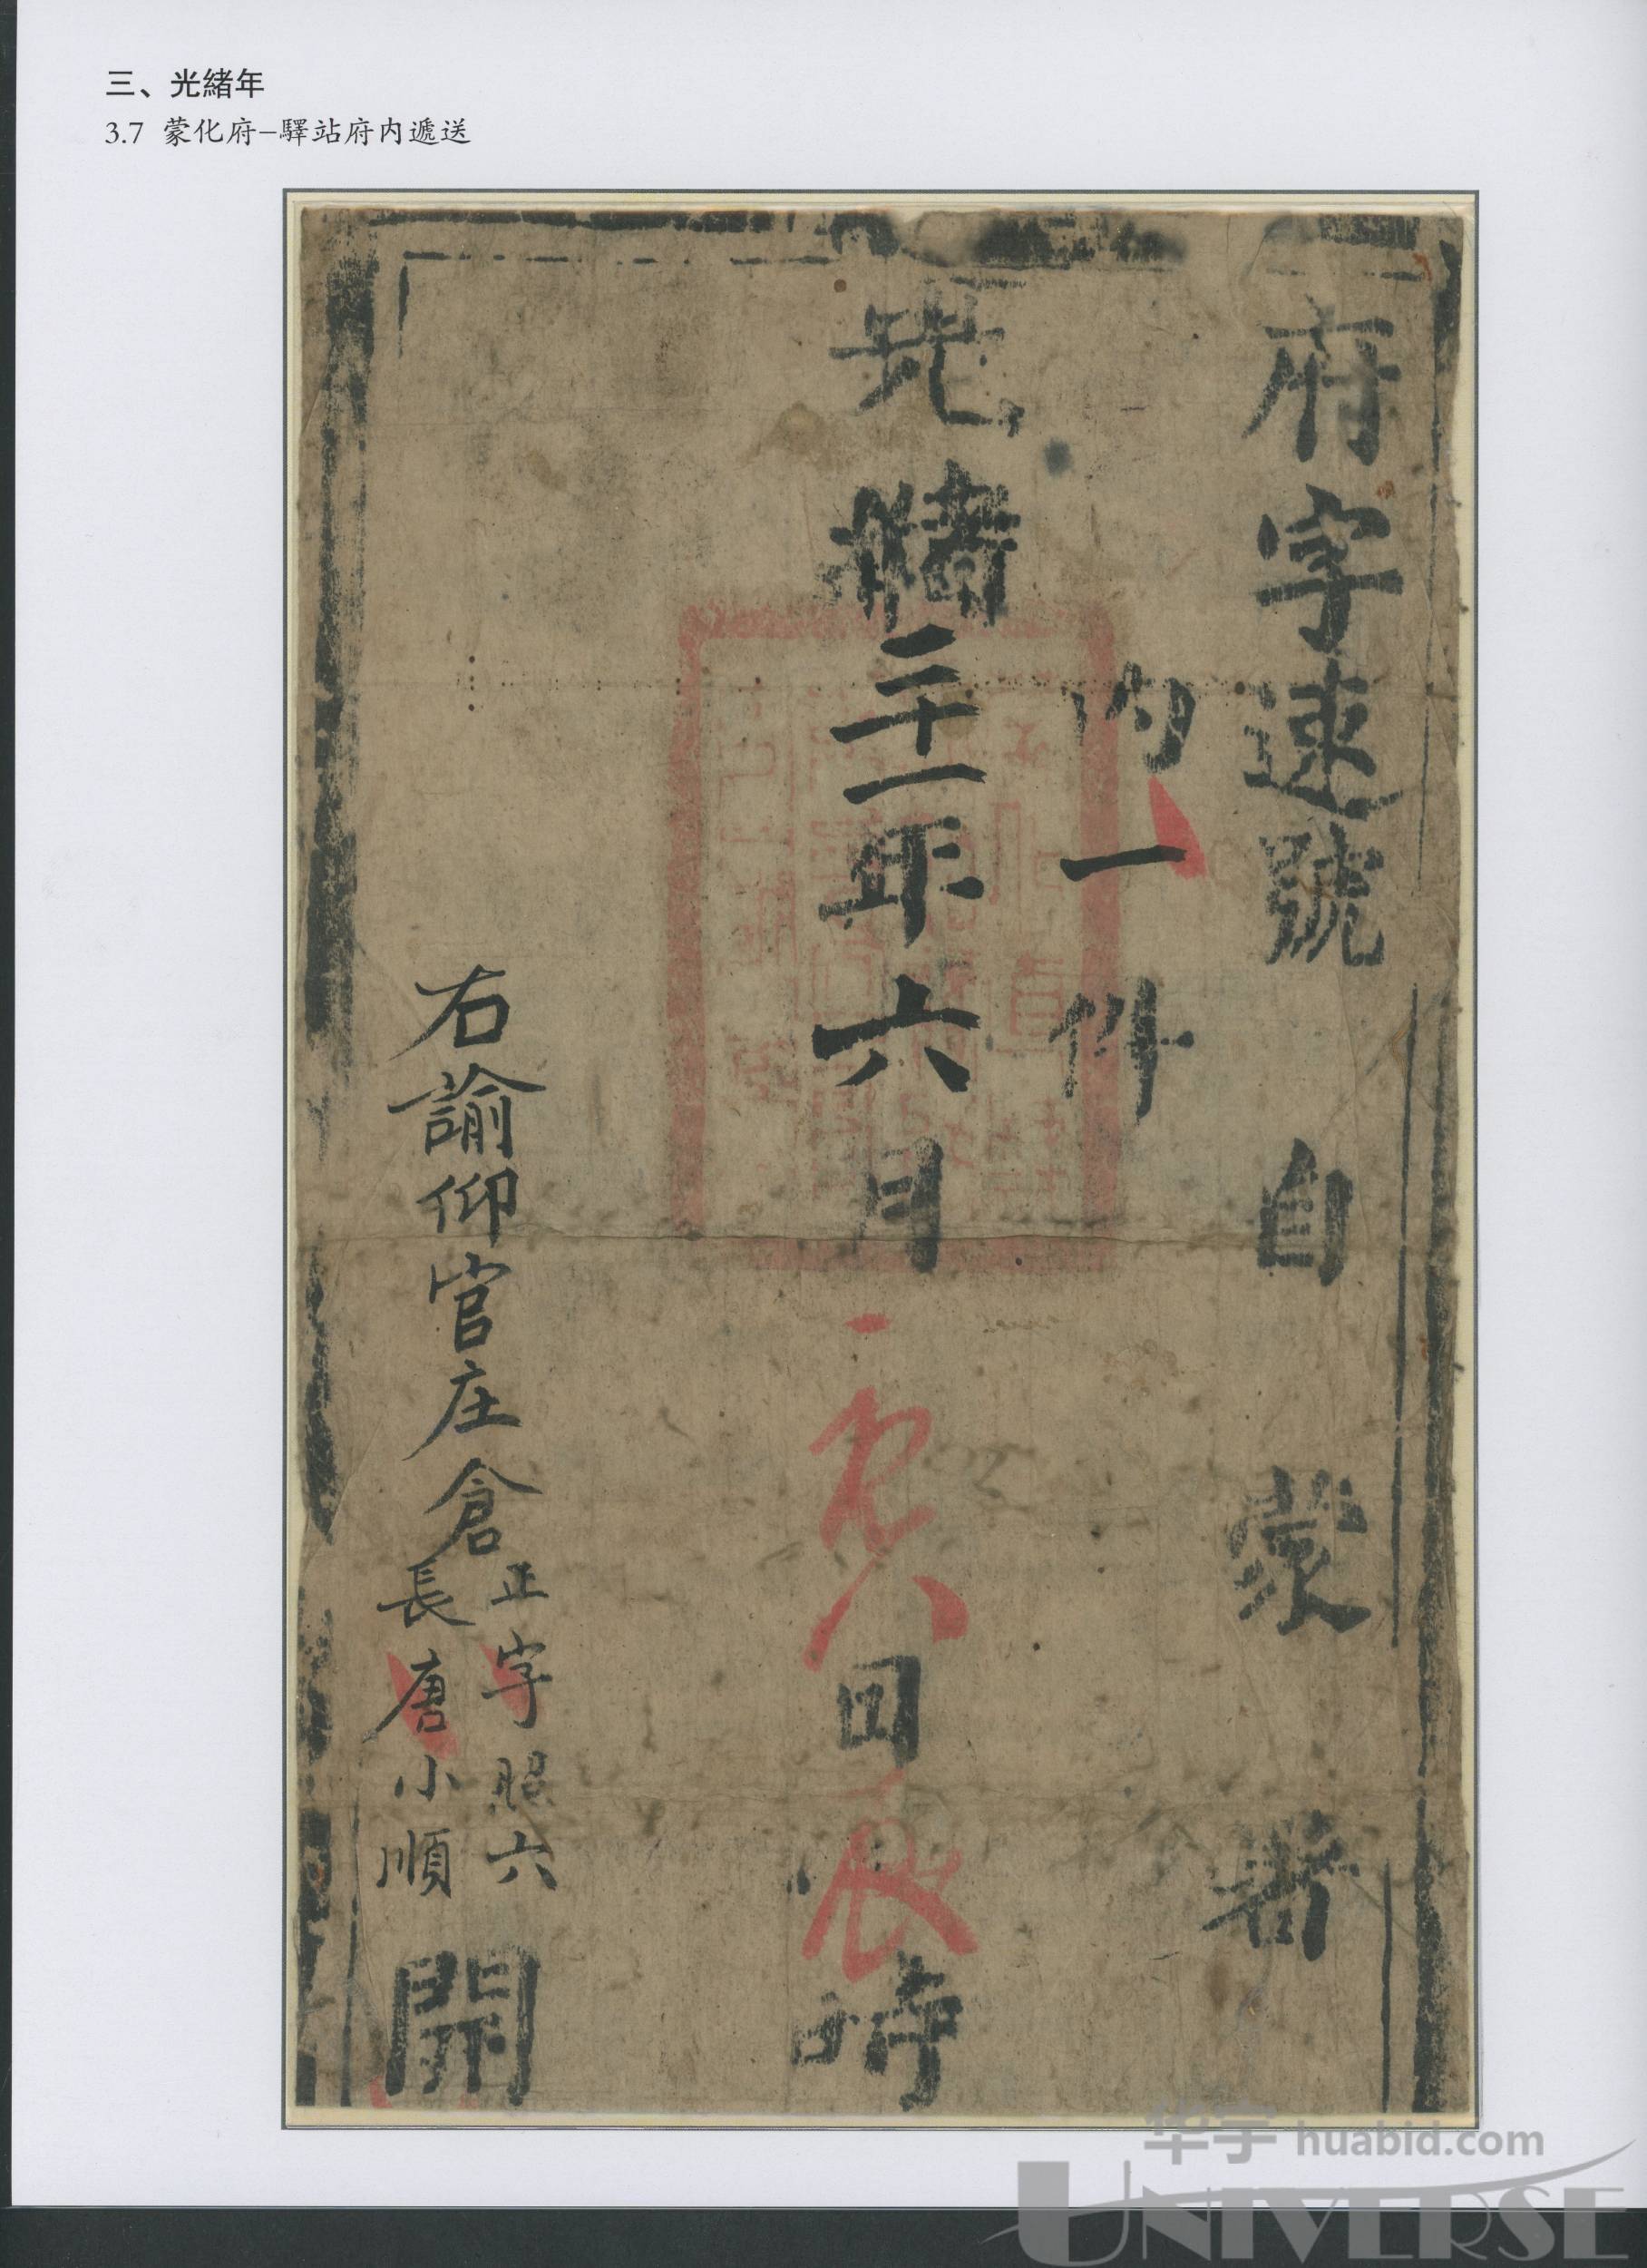 三、光緒年
3.7 蒙化府–驛站府内遞送
府字速號 自 蒙 署
内一件
光緒二十一年六月 日辰時
右諭仰官庄倉
正字照六
長唐小順
開
华宇 huabid.com
UNIVERSE